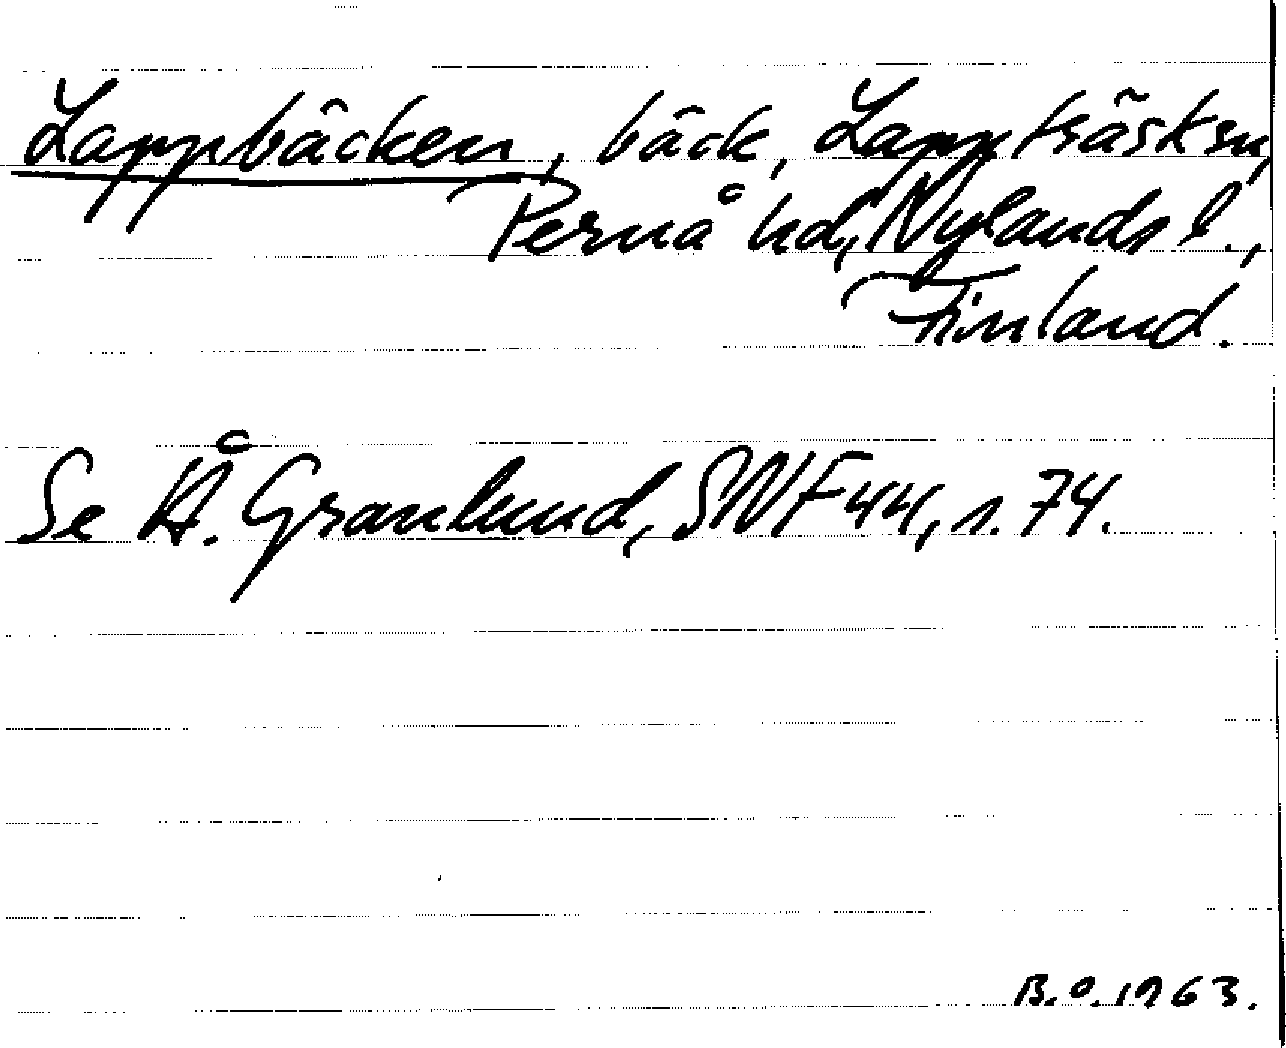 Lappbäcken, bäck, Lappträsk sn,
Pernå hd, Nylands l.,
Finland.
Se Å. Granlund, SNF 44, s. 74.
B.O. 1963.